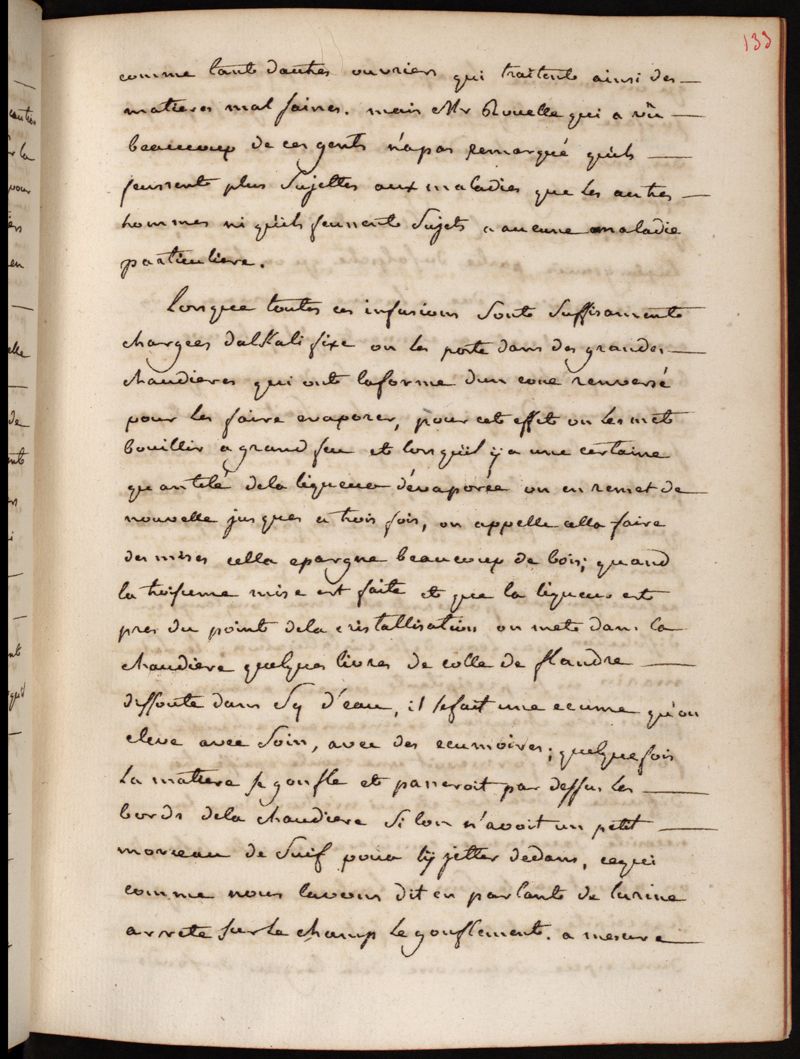 133
comme tant dautres ouvriers qui traitent ainsi des
matieres mal saines. mais Mr Rouelle qui a vûu
beaucoup de ces gents n'a pas remarqué quils
feussent plus sujettes aux maladies que les autres
hommes ni quils feussent sujets a aucune maladie
particuliere.
Lorsque toutes ces infusions sont suffisamente
chargees dalkali fixe on les porte dans des grandes
chaudieres qui ont laforme dun cone renversé
pour les faire evaporer, pour cet effet on les met
bouillir a grand feu et lorsquil y a une certaine
quantité dela liqueur d'évaporée on en remet de
nouvelle jusques a trois fois, on appelle cella faire
des mises cella epargne beaucoup de bois; quand
la troisieme mise est faite et que la liqueur est
pres du point dela cristallisation on mets dans la
chaudiere quelques livres de colle de flandre
dissoute dans Sq d'eau, il se fait une ecume qu'on
eleve avec soin, avec des ecumoires; quelquefois
la matiere se gonfle et passeroit par dessus les
bords dela chaudiere si lon n'avoit un petit
morceau de suif pour ly jetter dedans, cequi
comme nous lavons dit en parlant de lurine
arrete sur le champ le gonflement. a mesure